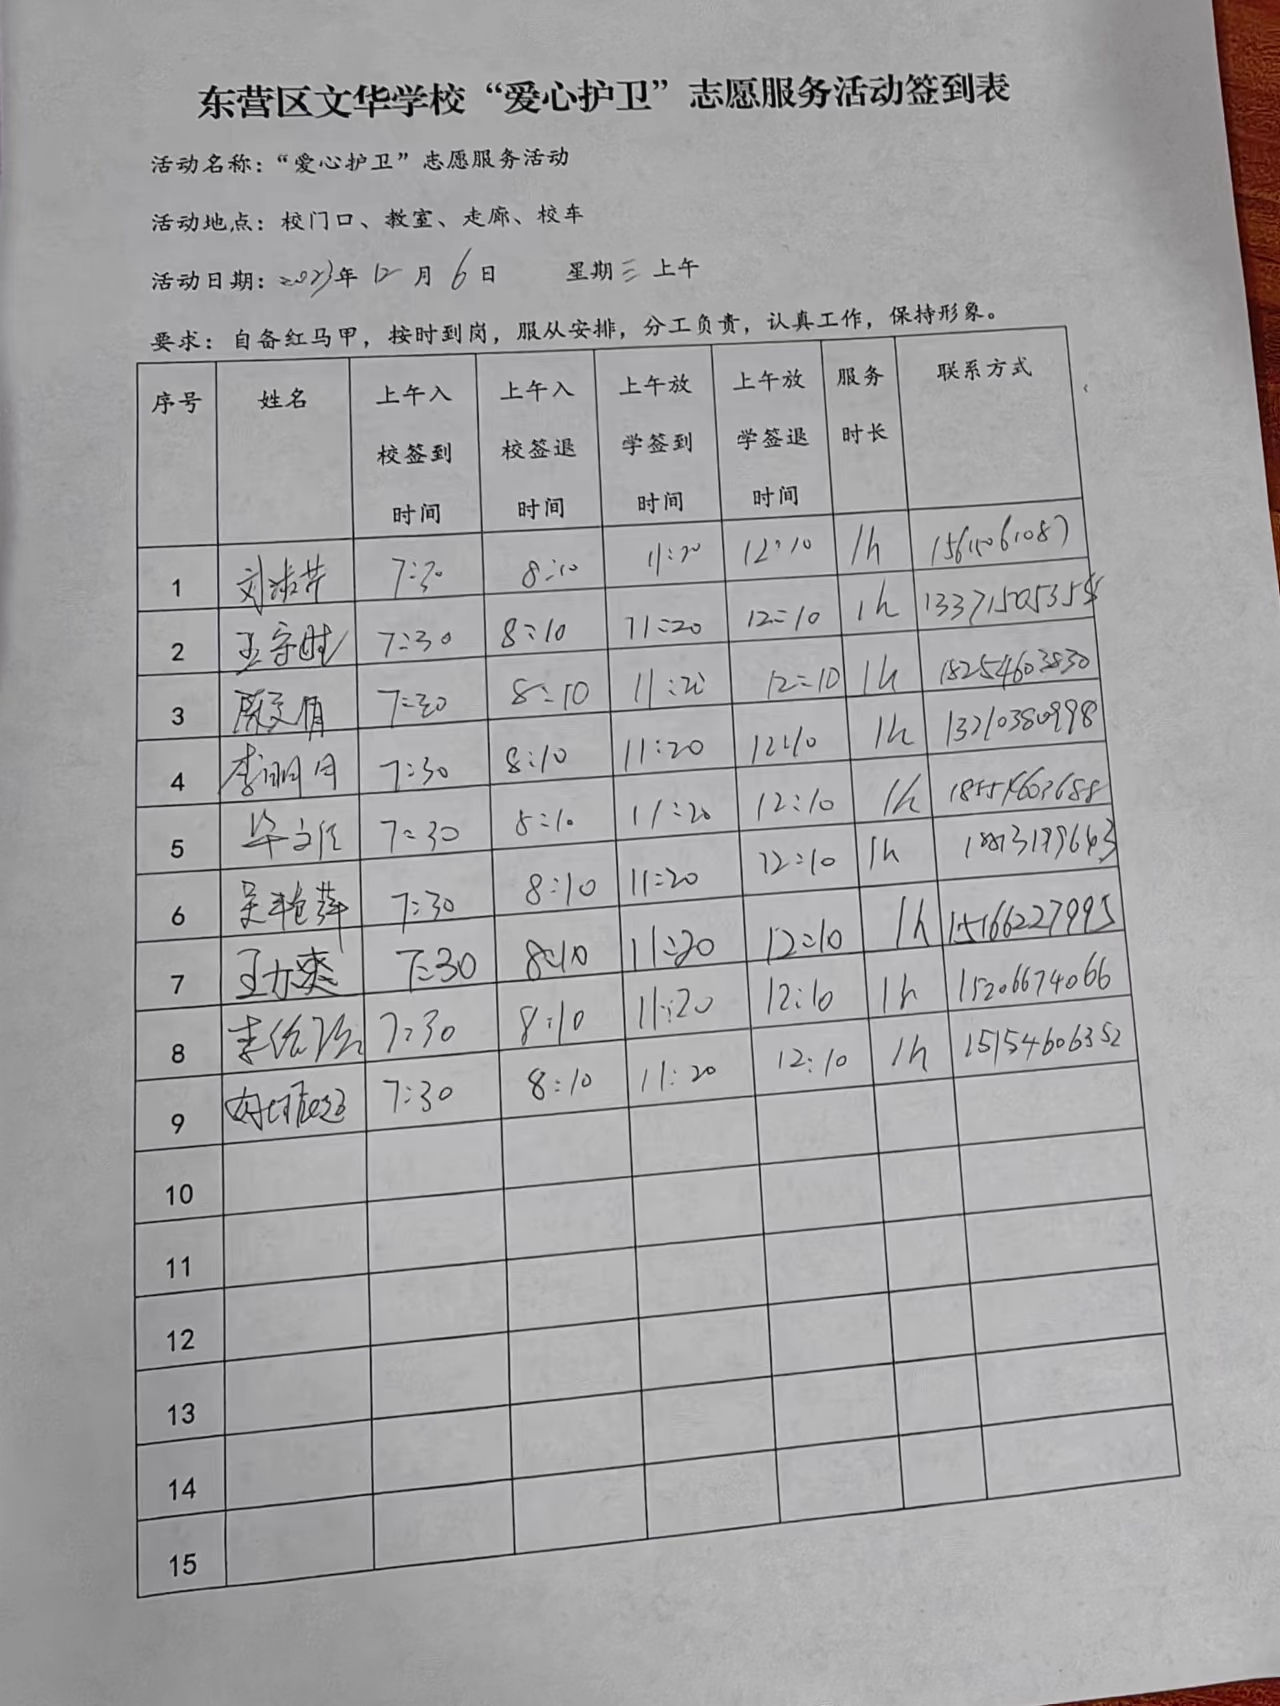 东营区文华学校“爱心护卫”志愿服务活动签到表
活动名称：“爱心护卫”志愿服务活动
活动地点：校门口、教室、走廊、校车
活动日期：2023年 12 月 6 日 星期三 上午
要求：自备红马甲，按时到岗，服从安排，分工负责，认真工作，保持形象。
序号 姓名 上午入校签到时间 上午入校签退时间 上午放学签到时间 上午放学签退时间 服务时长 联系方式
1 7:30 8:10 11:20 12:10 1h
2 王守时 7:30 8:10 11:20 12:10 1h
3 7:30 8:10 11:20 12:10 1h 18254603830
4 李明月 7:30 8:10 11:20 12:10 1h 13210380998
5 7:30 8:10 11:20 12:10 1h
6 吴艳萍 7:30 8:10 11:20 12:10 1h
7 王亦爽 7:30 8:10 11:20 12:10 1h 15166227995
8 7:30 8:10 11:20 12:10 1h 15206674066
9 7:30 8:10 11:20 12:10 1h 15154606352
10
11
12
13
14
15